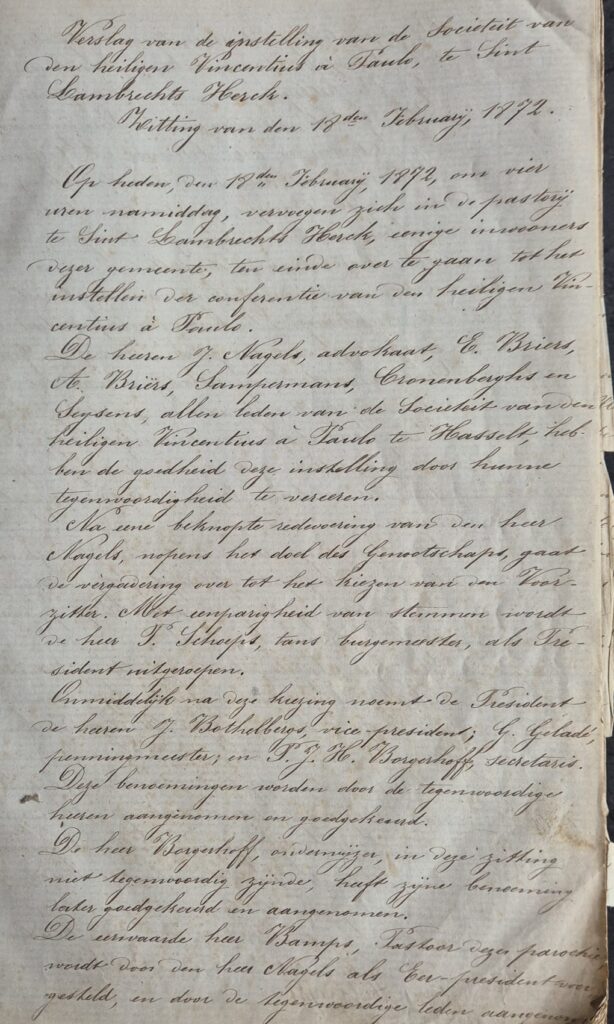 Verslag van de instelling van de Societeit van
den heiligen Vincentius à Paulo, te Sint
Lambrechts Herck.
Zitting van den 18den February, 1872.
Op heden, den 18den February, 1872, om vier
uren namiddag, vervoegen zich in de pastorij
te Sint Lambrechts Herck, eenige inwooners
dezer gemeente, ten einde over te gaan tot het
instellen der conferentie van den heiligen Vin-
centius à Paulo.
De heeren J. Nagels, advokaat, E. Briers,
A. Briërs, Sampermans, Cronenberghs en
Seysens, allen leden van de Societeit van den
heiligen Vincentius à Paulo te Hasselt, heb-
ben de goedheid deze instelling door hunne
tegenwoordigheid te vereeren.
Na eene beknopte redevoering van den heer
Nagels, nopens het doel des Genootschaps, gaat
de vergadering over tot het kiezen van den Voor-
zitter. Met eenparigheid van stemmen wordt
de heer P. Schoeps, tans burgemeester, als Pre-
sident uitgeroepen.
Onmiddelijk na deze kiezing noemt de President
de heeren J. Bothelbergs, vice-president; G. Geladé,
penningmeister; en P. J. H. Borgerhoff, secretaris.
Deze benoemingen worden door de tegenwoordige
heeren aangenomen en goedgekeurd.
De heer Borgerhoff, onderwijzer, in deze zitting
niet tegenwoordig zijnde, heeft zijne benoeming
later goedgekeurd en aangenomen.
De eerwaarde heer Bamps, Pastoor dezer parochie
wordt door den heer Nagels als Eer-president voor
gesteld, en door de tegenwoordige leden aangenom